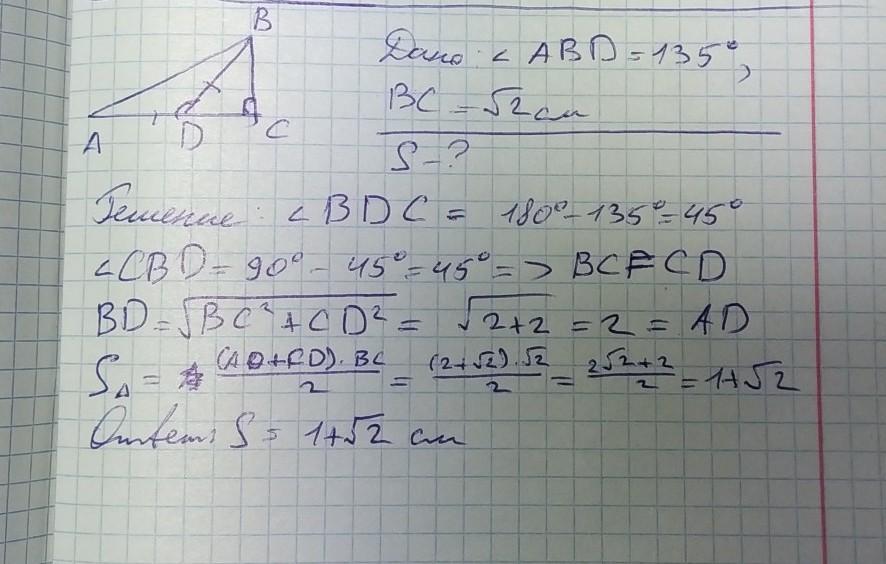 B
A
D
C
Дано: < ABD = 135°,
BC = √2 см
S - ?
Решение: < BDC = 180° - 135° = 45°
<CBD = 90° - 45° = 45° => BC = CD
BD = √BC² + CD² = √2+2 = 2 = AD
S△ = (AD+CD)·BC/2 = (2+√2)·√2/2 = 2√2+2/2 = 1+√2
Ответ: S = 1+√2 см